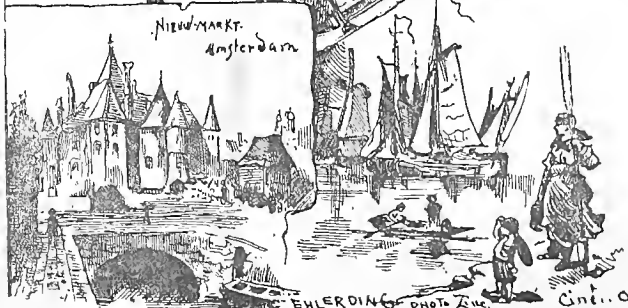 NIEUW-MARKT.
Amsterdam
EHLERDING PHOTO ZINC.